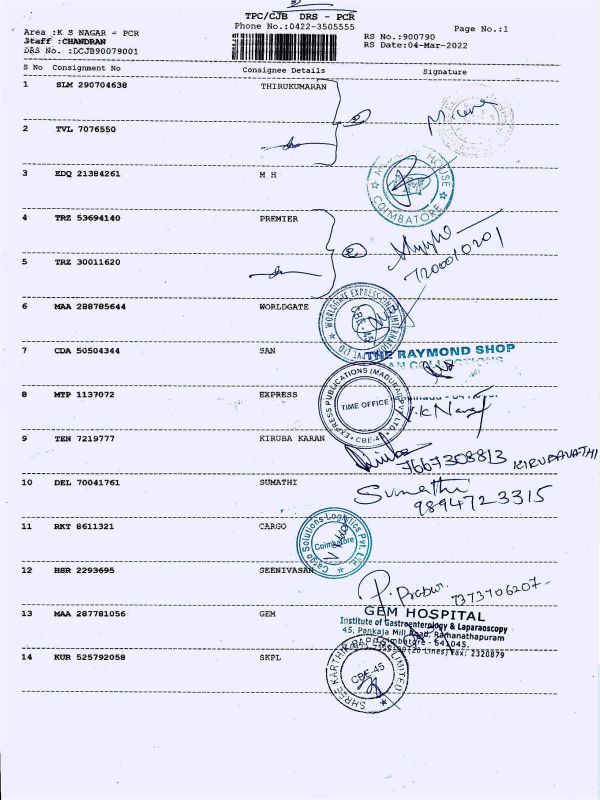 TPC/CJB DRS - PCR
Phone No.:0422-3505555
Page No.:1
Area :K S NAGAR - PCR
Staff :CHANDRAN
DRS No. :DCJB90079001
RS No.:900790
RS Date:04-Mar-2022
S No Consignment No Consignee Details Signature
1 SLM 290704638 THIRUKUMARAN
2 TVL 7076550
3 EDQ 21384261 M H
HOUSE
COIMBATORE
4 TRZ 53694140 PREMIER
7200010201
5 TRZ 30011620
6 MAA 288785644 WORLDGATE
WORLDGATE EXPRESS
7 CDA 50504344 SAN
THE RAYMOND SHOP
8 MTP 1137072 EXPRESS
EXPRESS PUBLICATIONS (MADURAI) PVT. LTD.
TIME OFFICE
CBE-4
9 TEN 7219777 KIRUBA KARAN
7667308813 KIRUPAVATHI
10 DEL 70041761 SUMATHI
Sumathi
9894723315
11 RKT 8611321 CARGO
Cargo Solutions Logistics Pvt. Ltd.
Coimbatore
12 HSR 2293695 SEENIVASAN
P. Prabu.
7373706207-
13 MAA 287781056 GEM
GEM HOSPITAL
Institute of Gastroenterology & Laparaoscopy
45, Pankaja Mill Road, Ramanathapuram
Coimbatore - 641045.
(20 Lines) Fax: 2320879
14 KUR 525792058 SKPL
SHREE KARTHIK PAPERS LIMITED
CBE-45